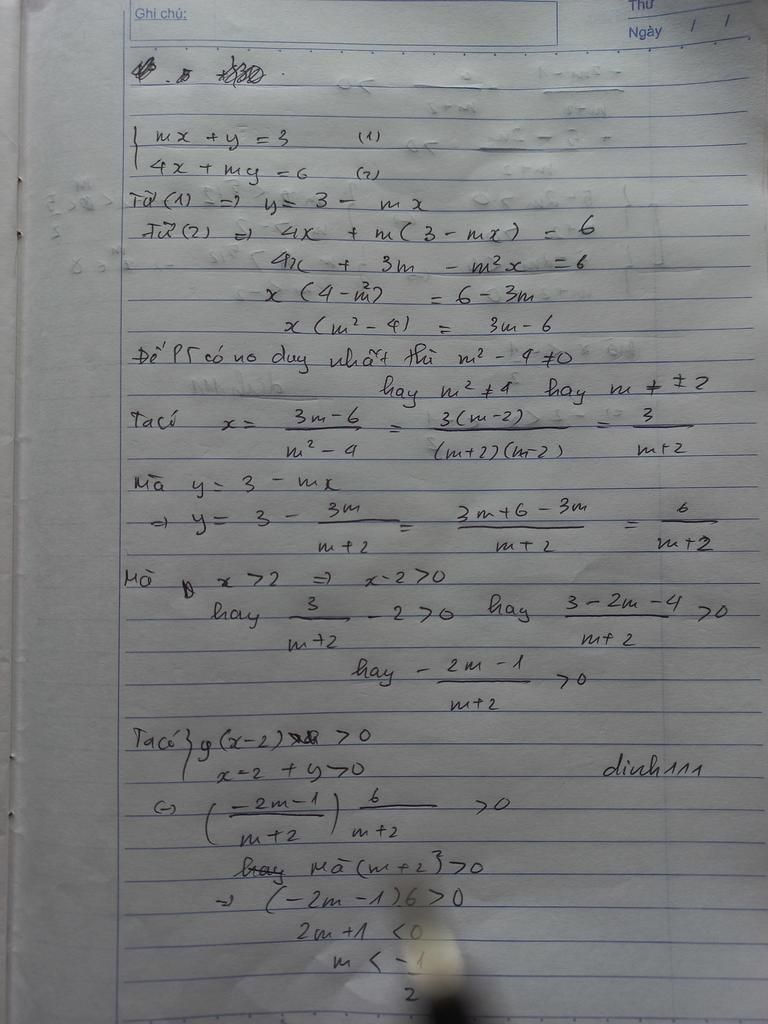 Ghi chú:
Thứ
Ngày / /
{ mx + y = 3 (1)
4x + my = 6 (2)
Từ (1) => y = 3 - mx
Từ (2) => 4x + m(3 - mx) = 6
4x + 3m - m²x = 6
x (4 - m²) = 6 - 3m
x (m² - 4) = 3m - 6
Để PT có no duy nhất thì m² - 4 ≠ 0
hay m² ≠ 4 hay m ≠ ± 2
Ta có x = (3m - 6)/(m² - 4) = 3(m-2)/((m+2)(m-2)) = 3/(m+2)
Mà y = 3 - mx
=> y = 3 - 3m/(m+2) = (3m + 6 - 3m)/(m+2) = 6/(m+2)
Mà x > 2 => x - 2 > 0
hay 3/(m+2) - 2 > 0 hay (3 - 2m - 4)/(m+2) > 0
hay - (2m - 1)/(m+2) > 0
Ta có { y(x-2) > 0
x - 2 + y > 0
dinh111
<=> ((-2m - 1)/(m+2)) 6/(m+2) > 0
Mà (m+2)² > 0
=> (-2m - 1)6 > 0
2m + 1 < 0
m < -1/2